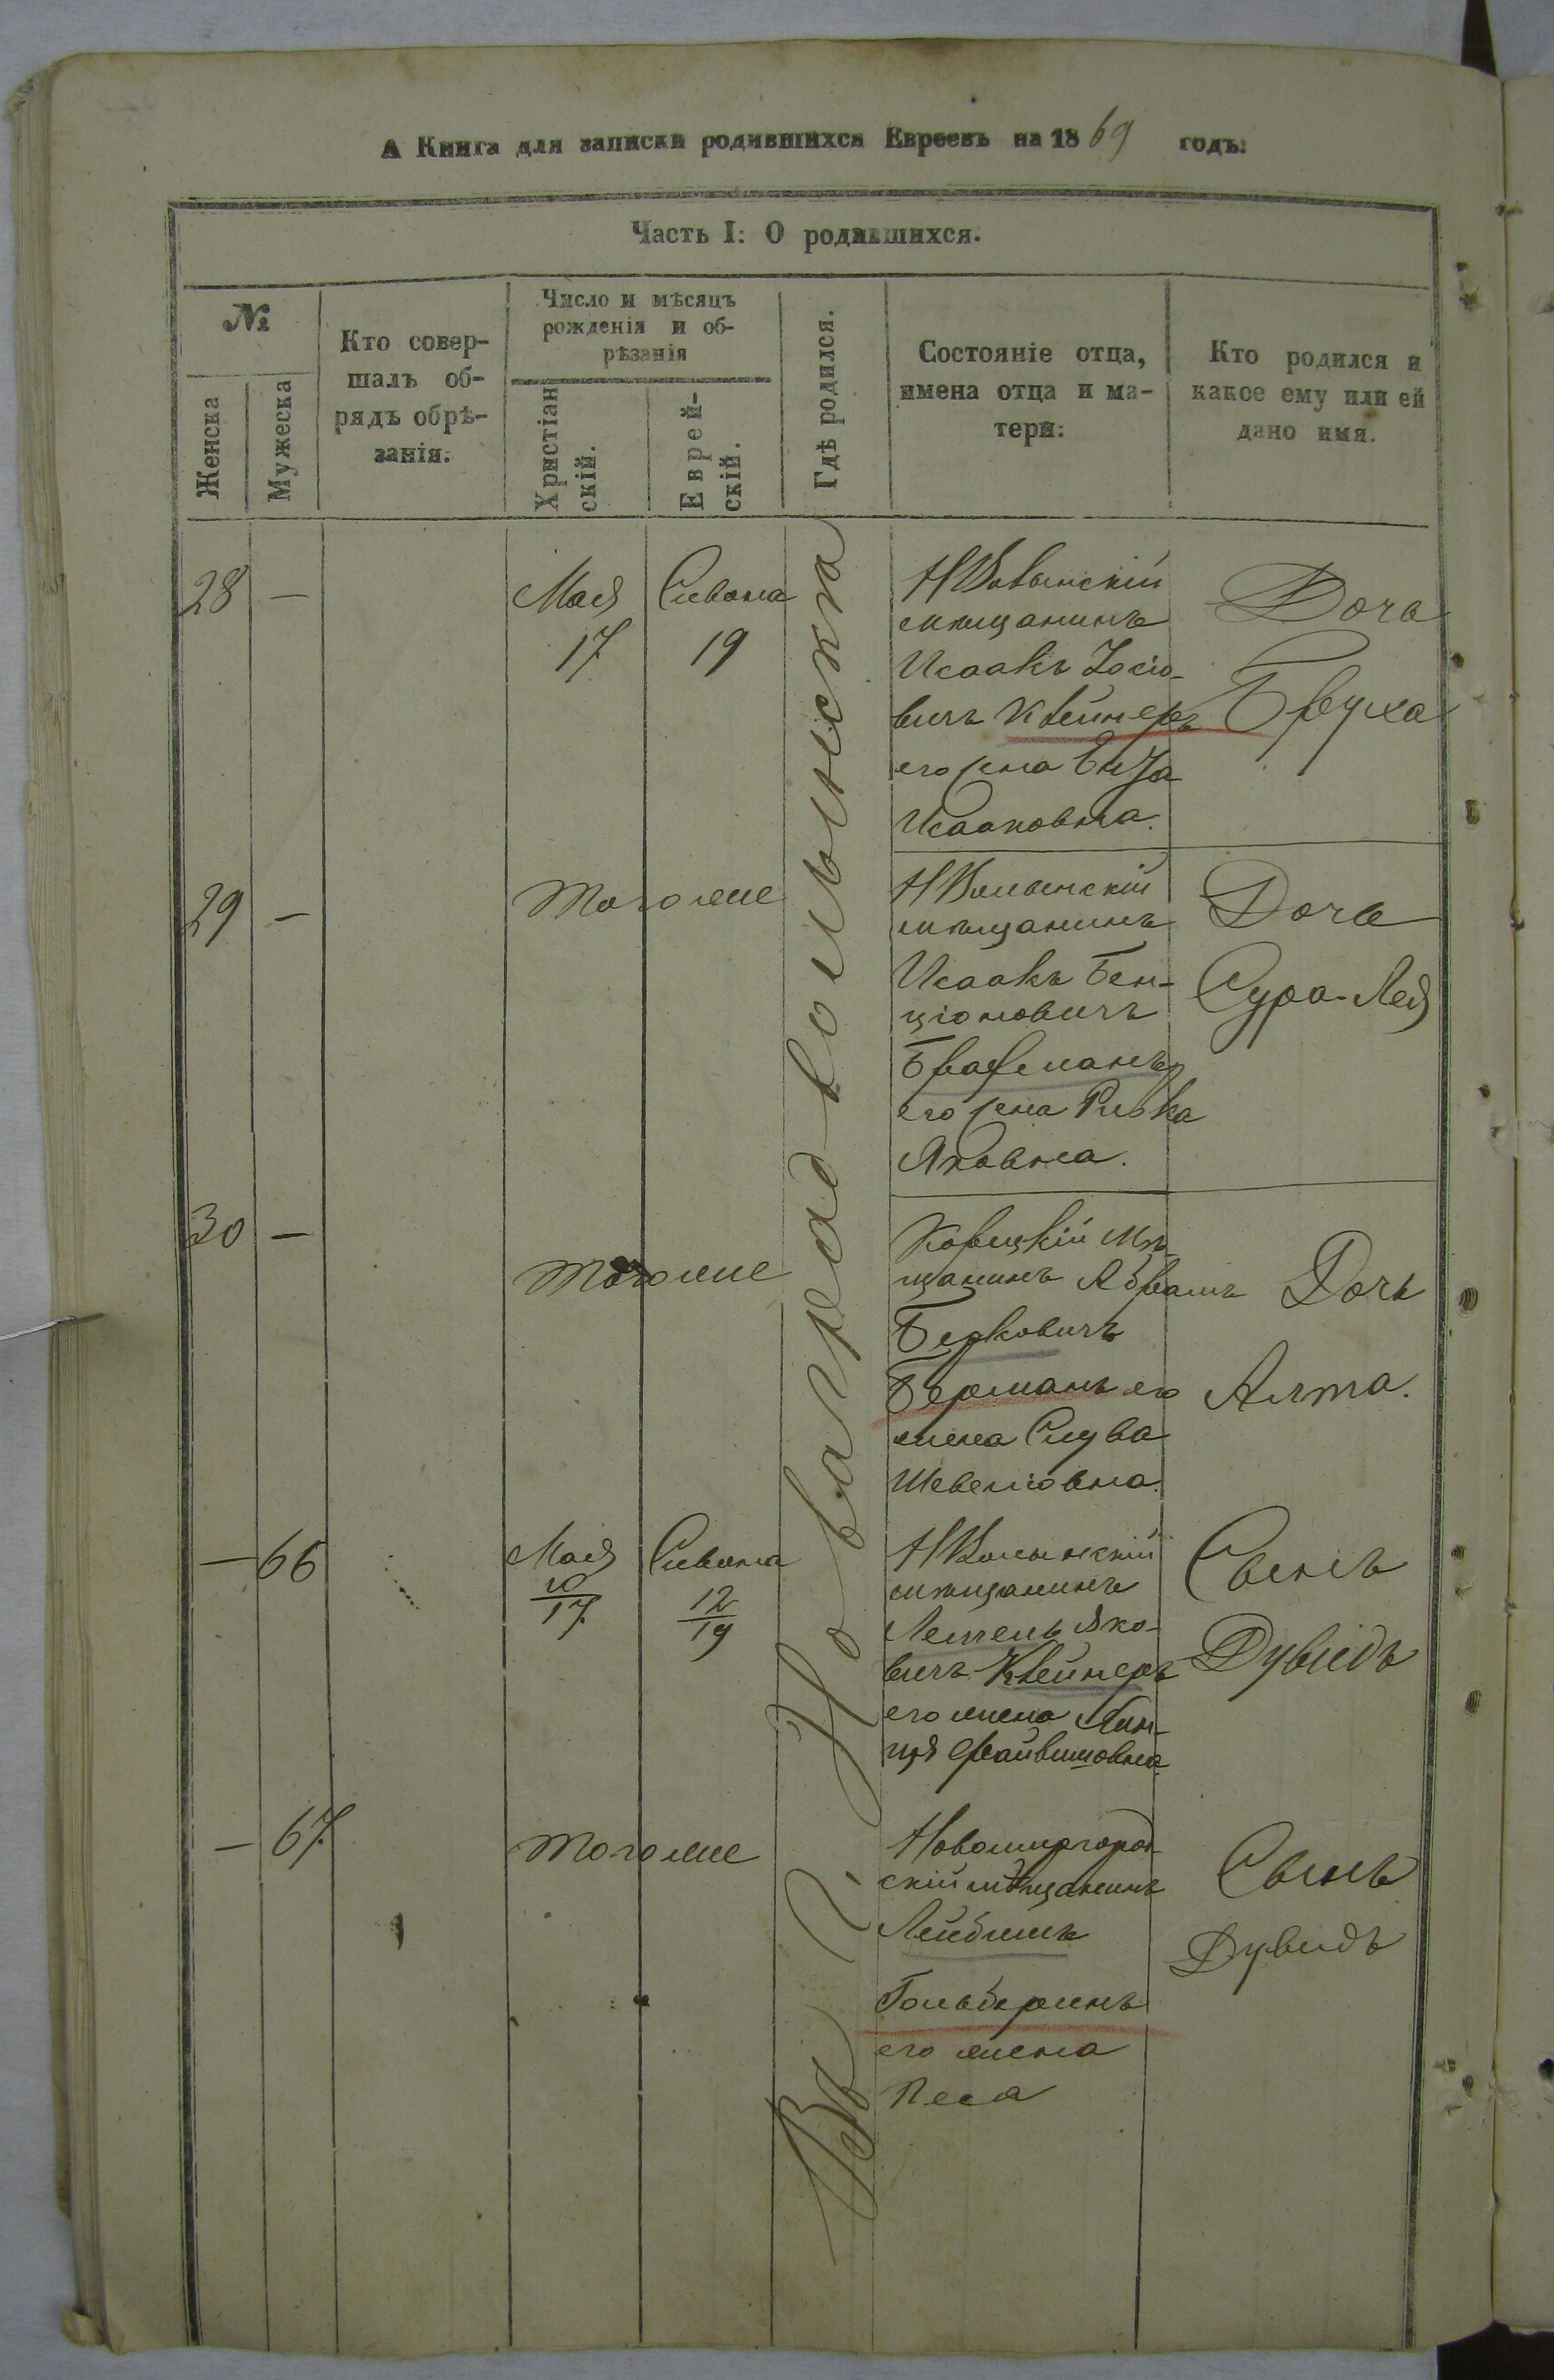 А Книга для записки родившихся Евреевъ на 1869 годъ:
Часть I: О родившихся.
№
Женска
Мужеска
Кто совер-
шалъ об-
рядъ обрѣ-
занія:
Число и мѣсяцъ
рожденія и об-
рѣзанія
Христіан
скій.
Еврей-
скій.
Гдѣ родился.
Состояніе отца,
имена отца и ма-
тери:
Кто родился и
какое ему или ей
дано имя.
В г. Новаград-волынска
28 —
Мая
17
Сивана
19
НВолынскій
мѣщанинъ
Исаакъ Іосіо-
вичъ Клейнеръ
его жена
Исааковна.
Дочь
Бруха
29 —
Тогоже
НВолынскій
мѣщанинъ
Исаакъ Бен-
ціоновичъ
Брафманъ
его жена Ривка
Яковна.
Дочь
Сура-Лея
30 —
Тогоже
мѣ-
щанинъ Абрамъ
Берковичъ
Берманъ его
жена Слува
Шевелiовна.
Дочь
Алта.
— 66
Мая
10
17
Сивана
12
19
НВолынскій
мѣщанинъ
Яко-
вичъ Клейнеръ
его жена
Файвишовна
Сынъ
Дувидъ
— 67
Тогоже
Новомиргород-
скій мѣщанинъ
Лейбишъ
Гольберинъ
его жена
Песа
Сынъ
Дувидъ